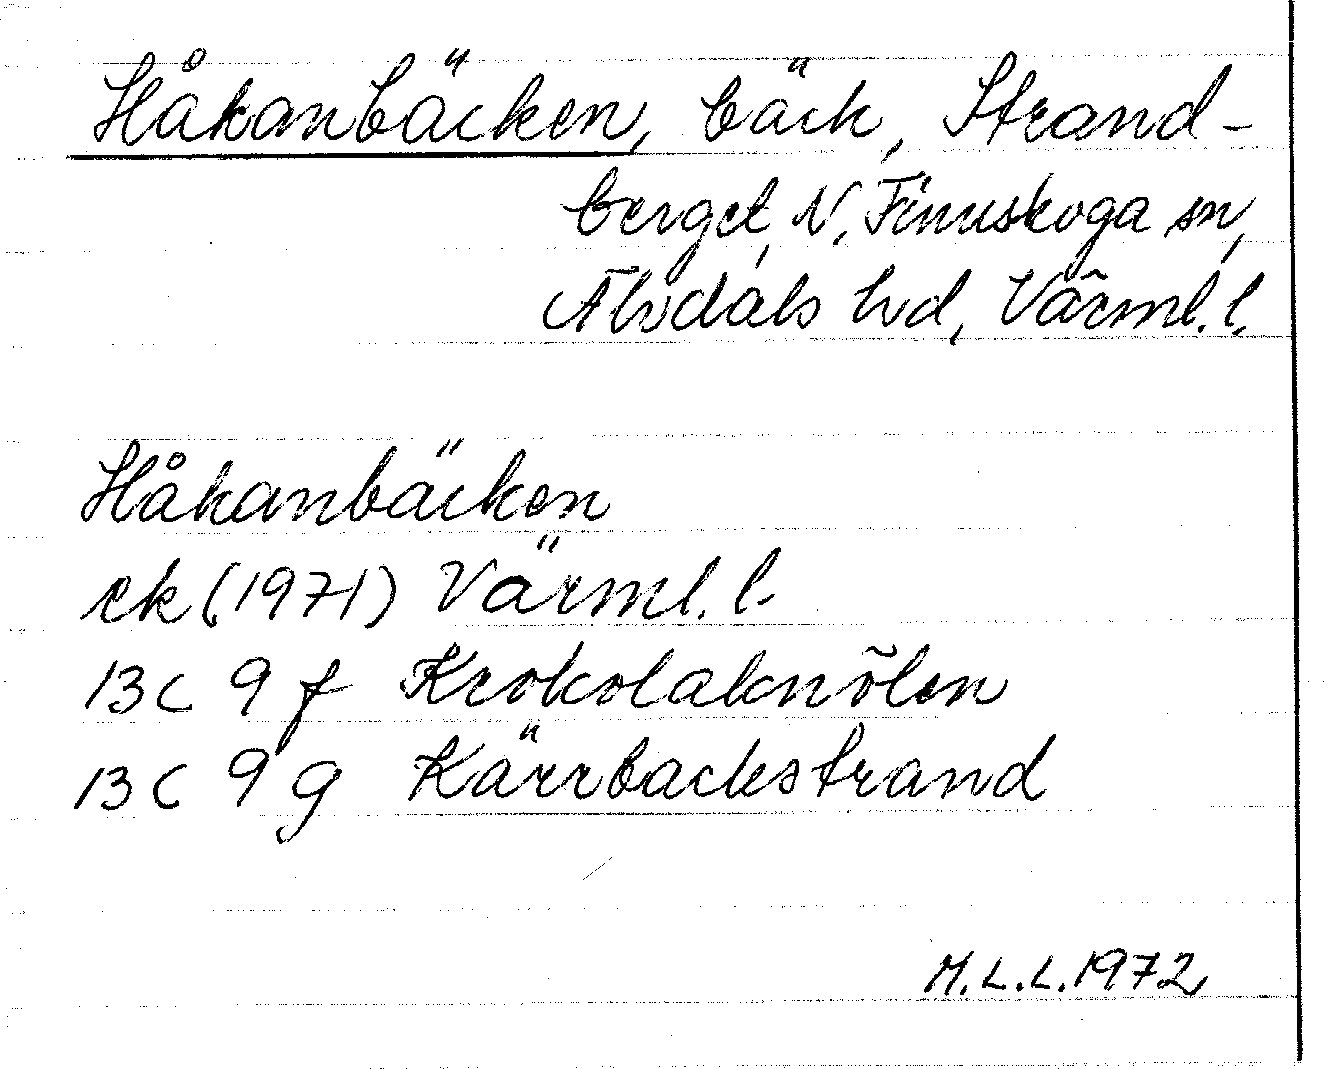 Håkanbäcken, bäck, Strand-
berget, N. Finnskoga sn,
Älvdals hd, Värml. l.
Håkanbäcken
ek (1971) Värml. l.
13C 9f Krokolaknölen
13C 9g Kärrbackstrand
M.L.L. 1972